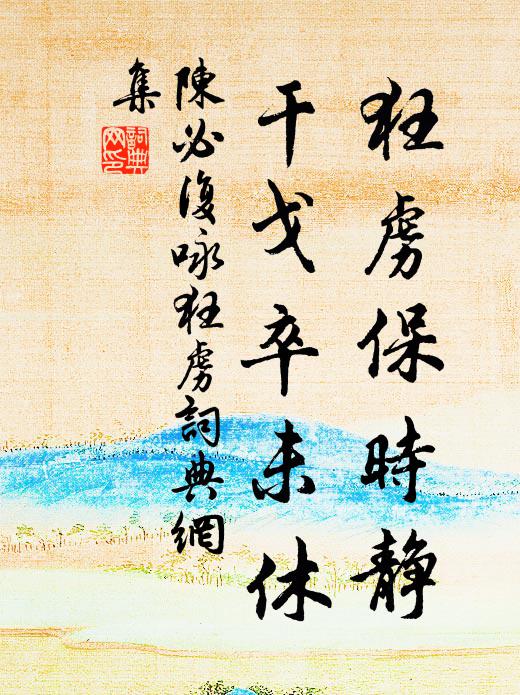 狂虜保時静
干戈卒未休
陳必復咏狂虜詞典網
集
詞典
网印